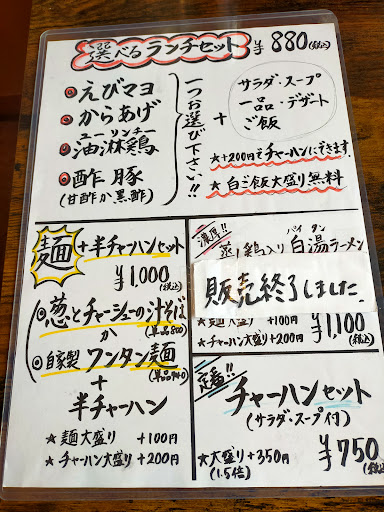 選べるランチセット ¥880(税込)
◎えびマヨ
◎からあげ
ユーリンチー
◎油淋鶏
◎酢豚
(甘酢か黒酢)
一つお選び下さい!!
+
サラダ・スープ
一品・デザート
ご飯
★+200円でチャーハンにできます。
★白ご飯大盛り無料
麺+半チャーハンセット
¥1,000(税込)
◎葱とチャーシューの汁そば
(単品800)
か
◎自家製ワンタン麺
(単品940)
+
半チャーハン
★麺大盛り +100円
★チャーハン大盛り +200円
濃厚!!
パイタン
蒸し鶏入り白湯ラーメン
販売終了しました。
★麺大盛り +100円
★チャーハン大盛り +200円
¥1,100
(税込)
定番!!
チャーハンセット
(サラダ・スープ付)
★大盛り+350円
(1.5倍)
¥750
(税込)